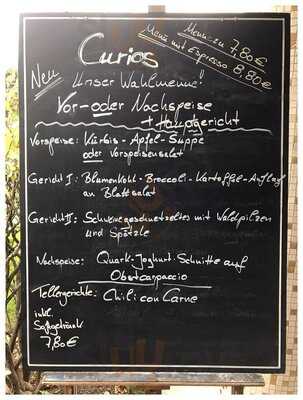 Menü zu 7,80€
Menü mit Espresso 8,80€
Curios
Neu
Unser Wahlmenue!
Vor- oder Nachspeise
+ Hauptgericht
Vorspeise: Kürbis-Apfel-Suppe
oder Vorspeisensalat
Gericht I: Blumenkohl-Broccoli-Kartoffel-Auflauf
an Blattsalat
Gericht II: Schweinegeschnetzeltes mit Waldpilzen
und Spätzle
Nachspeise: Quark-Joghurt-Schnitte auf
Obstcarpaccio
Tellergerichte: Chili con Carne
inkl.
Softgetränk
7,80€